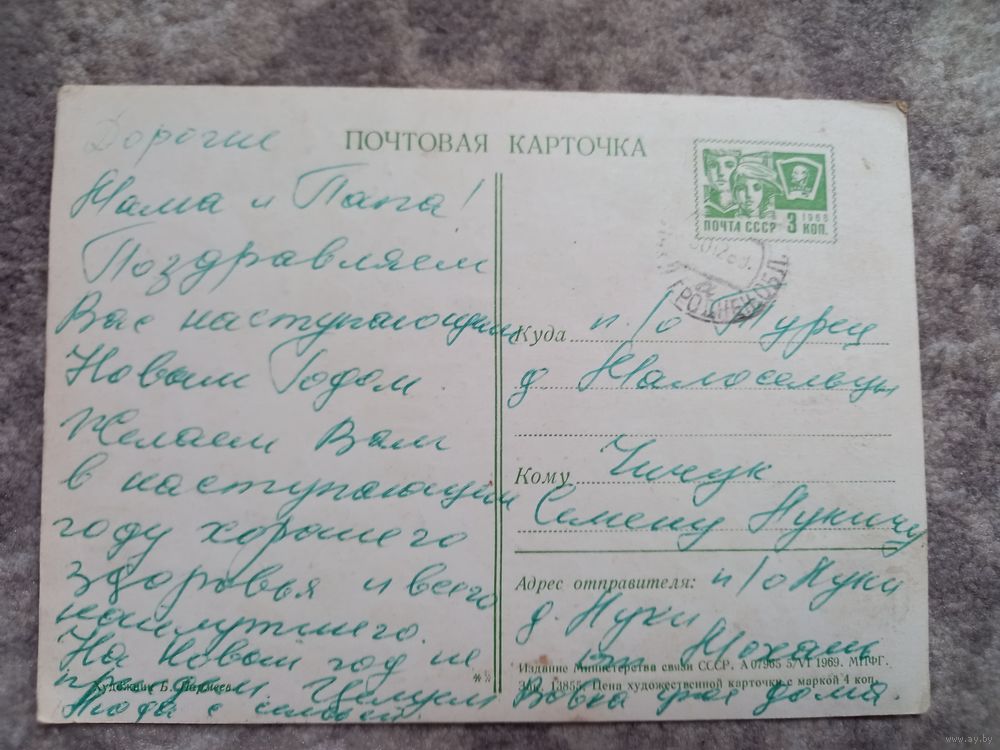 Дорогие
Мама и Папа!
Поздравляем
Вас наступающим
Новым Годом
Желаем Вам
в наступающем
году хорошего
здоровья и всего
наилутшего.
На Новый год не
Целуем
Люда с семьёй.
Художник Б.
ПОЧТОВАЯ КАРТОЧКА
ПОЧТА СССР 3 КОП.
1966
Куда п/о Турец
д Малосельцы
Кому Чичук
Семену Лукичу
Адрес отправителя: п/о Луки
д. Луки
Издание Министерства связи СССР. А 07965 5/VI 1969. МПФГ.
Зак. 13855. Цена художественной карточки с маркой 4 коп.
Вовка уже дома.
www.ay.by